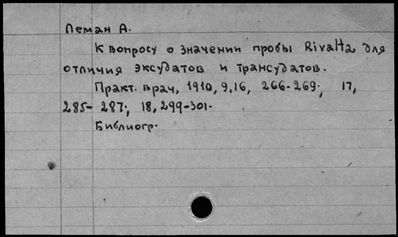 Леман А.
К вопросу о значении пробы Rivalta для
отличия эксудатов и трансудатов.
Практ. врач, 1910, 9,16, 266-269; 17,
285-287; 18, 299-301.
Библиогр.